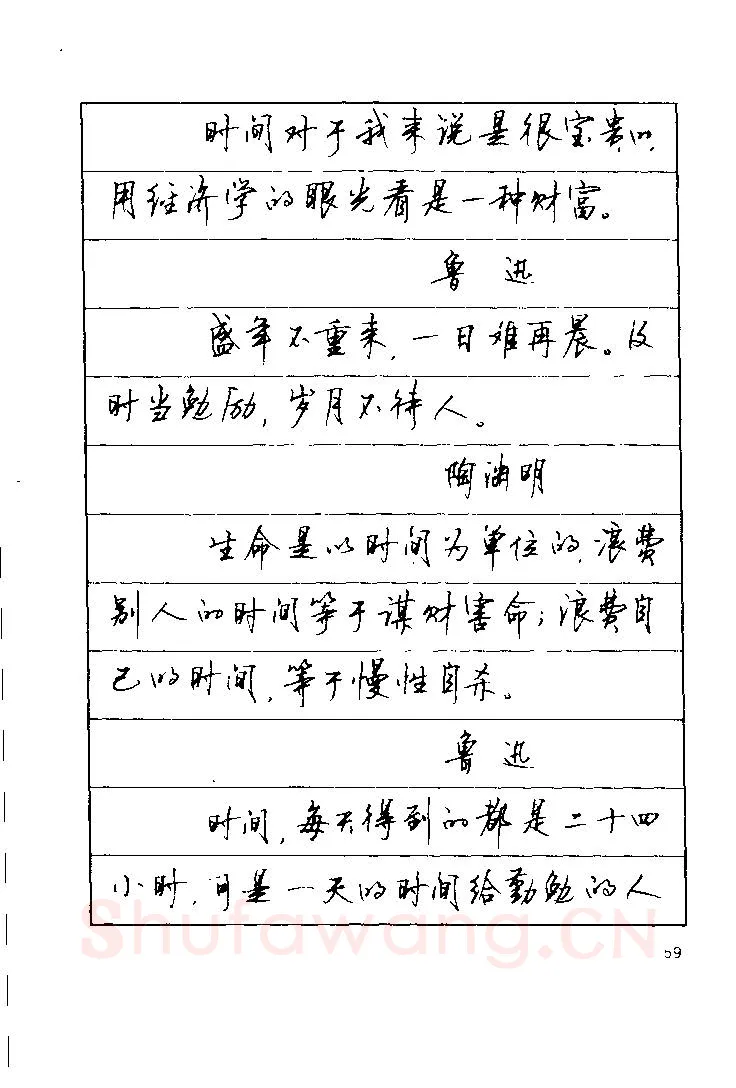 时间对于我来说是很宝贵的,
用经济学的眼光看是一种财富。
鲁迅
盛年不重来,一日难再晨。及
时当勉励,岁月不待人。
陶渊明
生命是以时间为单位的,浪费
别人的时间等于谋财害命;浪费自
己的时间,等于慢性自杀。
鲁迅
时间,每天得到的都是二十四
小时,可是一天的时间给勤勉的人
Shufawang.CN
59